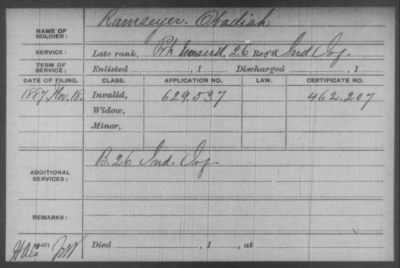 NAME OF SOLDIER: Ramseyer, Obadiah
SERVICE: Late rank, Prt. 26 Reg't Ind. Inf.
TERM OF SERVICE: Enlisted , 1 Discharged , 1
DATE OF FILING. CLASS. APPLICATION NO. LAW. CERTIFICATE NO.
1887, Nov. 18. Invalid, 629.537 462.207
Widow,
Minor,
ADDITIONAL SERVICES: B. 26 Ind. Inf.
REMARKS:
Died , 1 , at